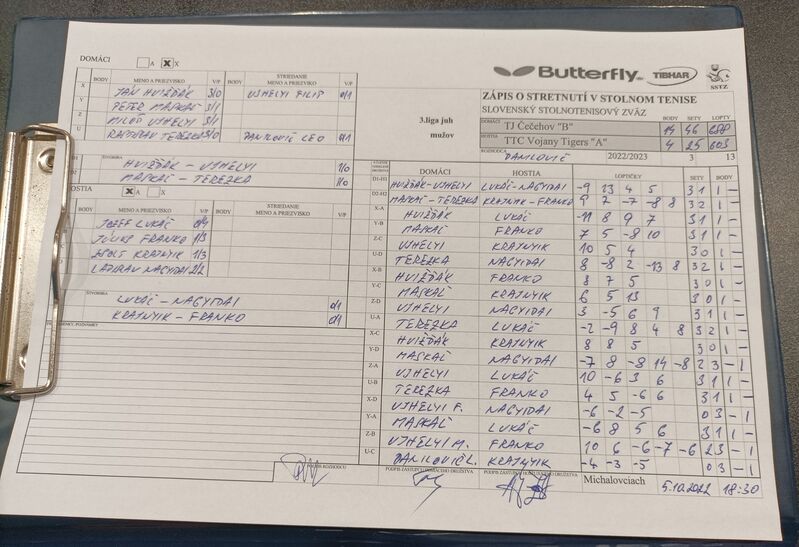 DOMÁCI A X X
Butterfly. TIBHAR SSTZ
ZÁPIS O STRETNUTÍ V STOLNOM TENISE
SLOVENSKÝ STOLNOTENISOVÝ ZVÄZ
BODY MENO A PRIEZVISKO V/P BODY STRIEDANIE MENO A PRIEZVISKO V/P
X JÁN HVIŽĎÁK 3/0 UJHELYI FILIP 0/1
Y PETER MASKAĽ 3/1
Z MILOŠ UJHELYI 3/1
U RASTISLAV TEREZKA 3/0 DANILOVIČ LEO 0/1
3.liga juh
mužov
BODY SETY LOPTY
DOMÁCI TJ Čečehov "B" 14 46 688
HOSTIA TTC Vojany Tigers "A" 4 25 603
ROZHODCA DANILOVIČ 2022/2023 3 13
ŠTVORHRA
D1 HVIŽĎÁK - UJHELYI 1/0
D2 MASKAĽ - TEREZKA 1/0
HOSTIA X A X
BODY MENO A PRIEZVISKO V/P BODY STRIEDANIE MENO A PRIEZVISKO V/P
JOZEF LUKÁČ 0/4
JÚLIUS FRANKO 1/3
ZSOLT KRATNYIK 1/3
LADISLAV NAGYIDAI 2/2
ŠTVORHRA
LUKÁČ - NAGYIDAI 0/1
KRATNYIK - FRANKO 0/1
DOMÁCI HOSTIA LOPTIČKY SETY BODY
D1-H1 HVIŽĎÁK-UJHELYI LUKÁČ-NAGYIDAI -9 13 4 5 3 1 1 -
D2-H2 MASKAĽ-TEREZKA KRATNYIK-FRANKO 9 7 -7 -8 8 3 2 1 -
X-A HVIŽĎÁK LUKÁČ -11 8 9 7 3 1 1 -
Y-B MASKAĽ FRANKO 7 5 -8 10 3 1 1 -
Z-C UJHELYI KRATNYIK 10 5 4 3 0 1 -
U-D TEREZKA NAGYIDAI 8 -8 2 -13 8 3 2 1 -
X-B HVIŽĎÁK FRANKO 8 7 5 3 0 1 -
Y-C MASKAĽ KRATNYIK 6 5 13 3 0 1 -
Z-D UJHELYI NAGYIDAI 3 -5 6 9 3 1 1 -
U-A TEREZKA LUKÁČ -2 -9 8 4 8 3 2 1 -
X-C HVIŽĎÁK KRATNYIK 8 8 5 3 0 1 -
Y-D MASKAĽ NAGYIDAI -7 8 -8 14 -8 2 3 - 1
Z-A UJHELYI LUKÁČ 10 -6 3 6 3 1 1 -
U-B TEREZKA FRANKO 4 5 -6 6 3 1 1 -
X-D UJHELYI F. NAGYIDAI -6 -2 -5 0 3 - 1
Y-A MASKAĽ LUKÁČ -6 8 5 6 3 1 1 -
Z-B UJHELYI M. FRANKO 10 6 -6 -7 -6 2 3 - 1
U-C DANILOVIČ L. KRATNYIK -4 -3 -5 0 3 - 1
PODPIS ROZHODCU PODPIS ZÁSTUPCU DOMÁCEHO DRUŽSTVA PODPIS ZÁSTUPCU HOSTUJÚCEHO DRUŽSTVA Michalovciach 5.10.2022 18:30